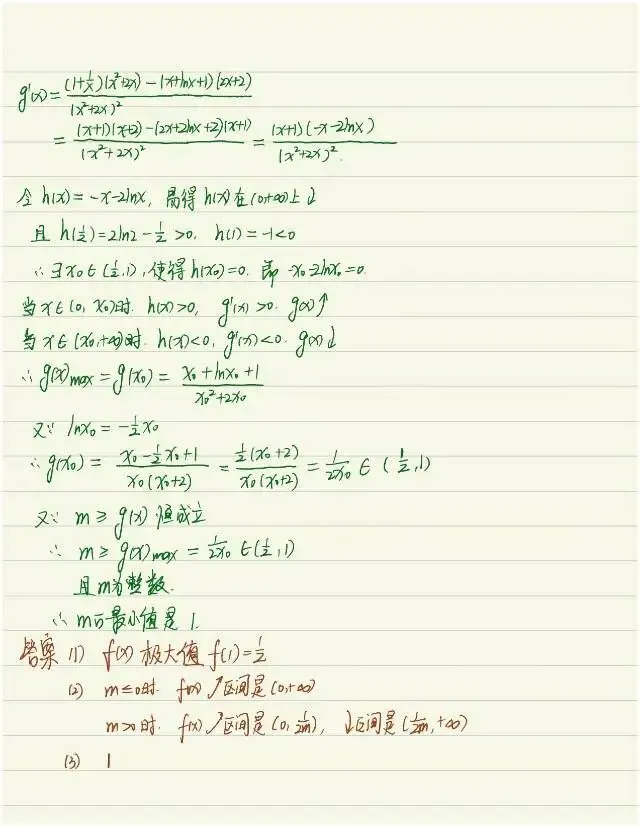 g'(x) = \frac{(1+\frac{1}{x})(x²+2x) - (x+lnx+1)(2x+2)}{(x²+2x)²}
= \frac{(x+1)(x+2) - (2x+2lnx+2)(x+1)}{(x²+2x)²} = \frac{(x+1)(-x-2lnx)}{(x²+2x)²}.
令 h(x) = -x-2lnx, 易得 h(x) 在 (0,+∞) 上 ↓
且 h(½) = 2ln2 - ½ > 0. h(1) = -1 < 0
∴ ∃ x₀ ∈ (½, 1), 使得 h(x₀) = 0. 即 -x₀-2lnx₀ = 0.
当 x ∈ (0, x₀) 时. h(x) > 0, g'(x) > 0. g(x) ↑
当 x ∈ (x₀, +∞) 时. h(x) < 0, g'(x) < 0. g(x) ↓
∴ g(x)max = g(x₀) = \frac{x₀+lnx₀+1}{x₀²+2x₀}
又∵ lnx₀ = -½x₀
∴ g(x₀) = \frac{x₀-½x₀+1}{x₀(x₀+2)} = \frac{½(x₀+2)}{x₀(x₀+2)} = \frac{1}{2x₀} ∈ (½, 1)
又∵ m ≥ g(x) 恒成立
∴ m ≥ g(x)max = \frac{1}{2x₀} ∈ (½, 1)
且 m 为整数.
∴ m 最小值是 1.
答案 (1) f(x) 极大值 f(1) = ½
(2) m ≤ 0 时. f(x) ↗ 区间是 (0,+∞)
m > 0 时. f(x) ↗ 区间是 (0, \frac{1}{2m}), ↓ 区间是 (\frac{1}{2m}, +∞)
(3) 1